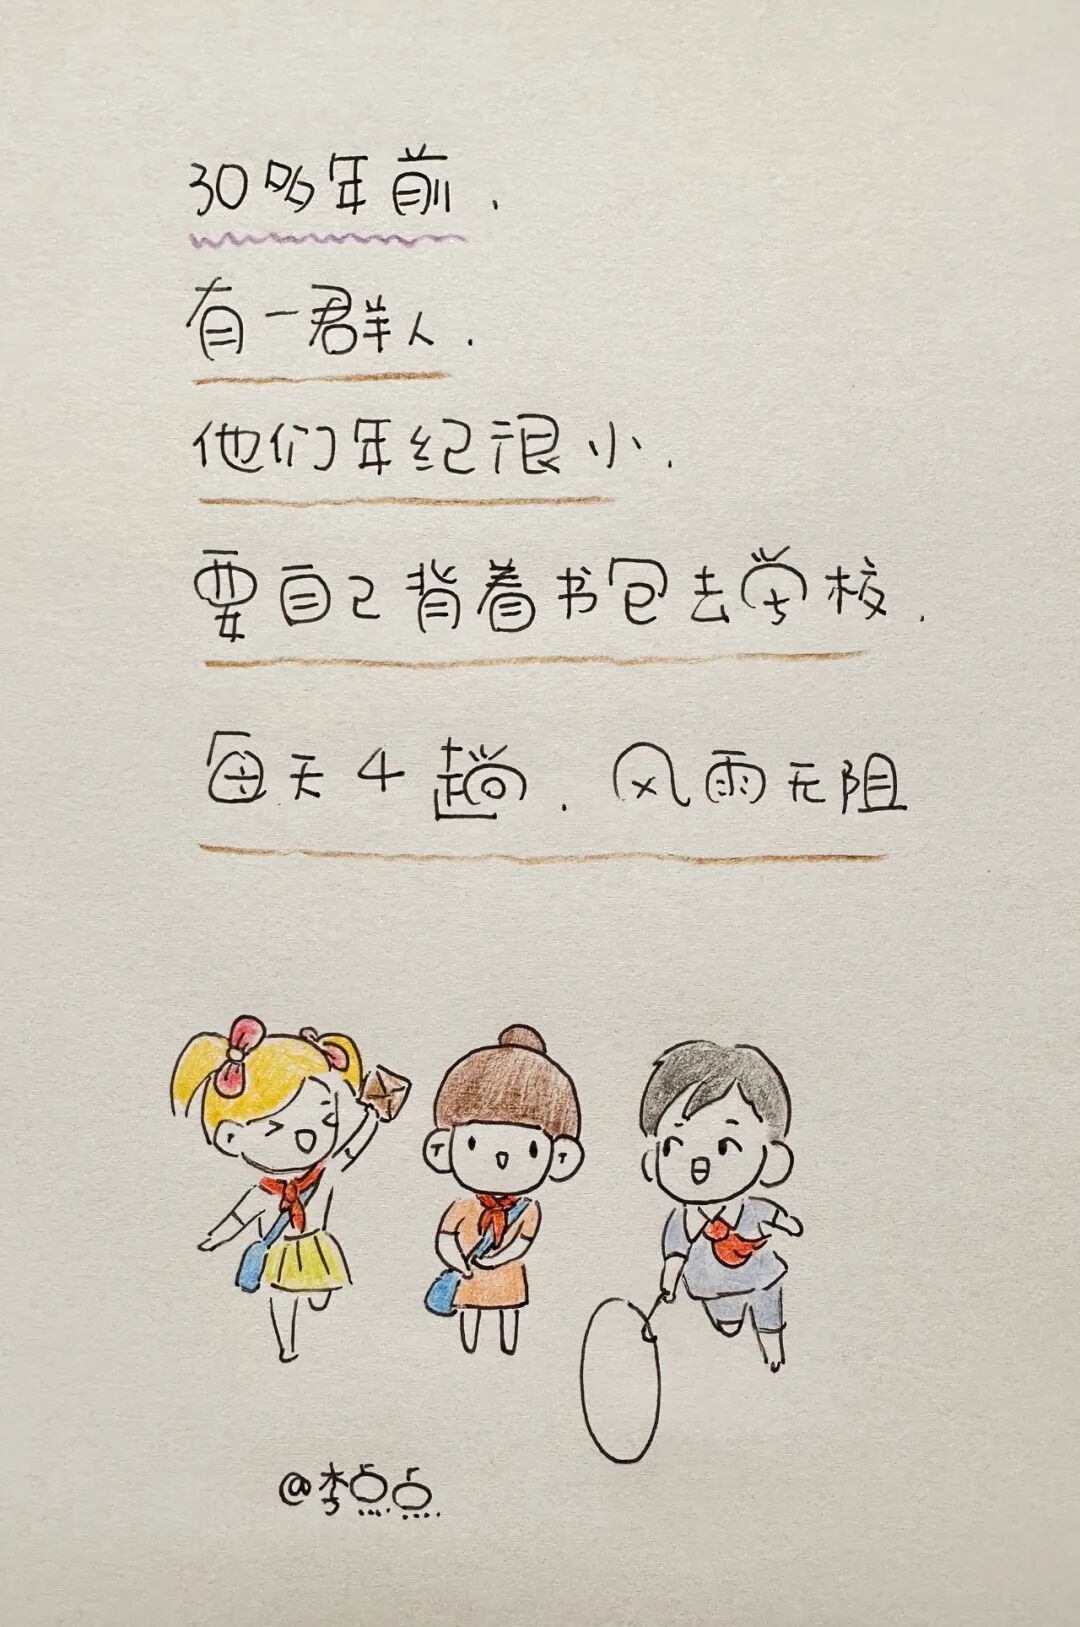 30多年前.
有一群人.
他们年纪很小.
要自己背着书包去学校.
每天4趟.风雨无阻
@李点点